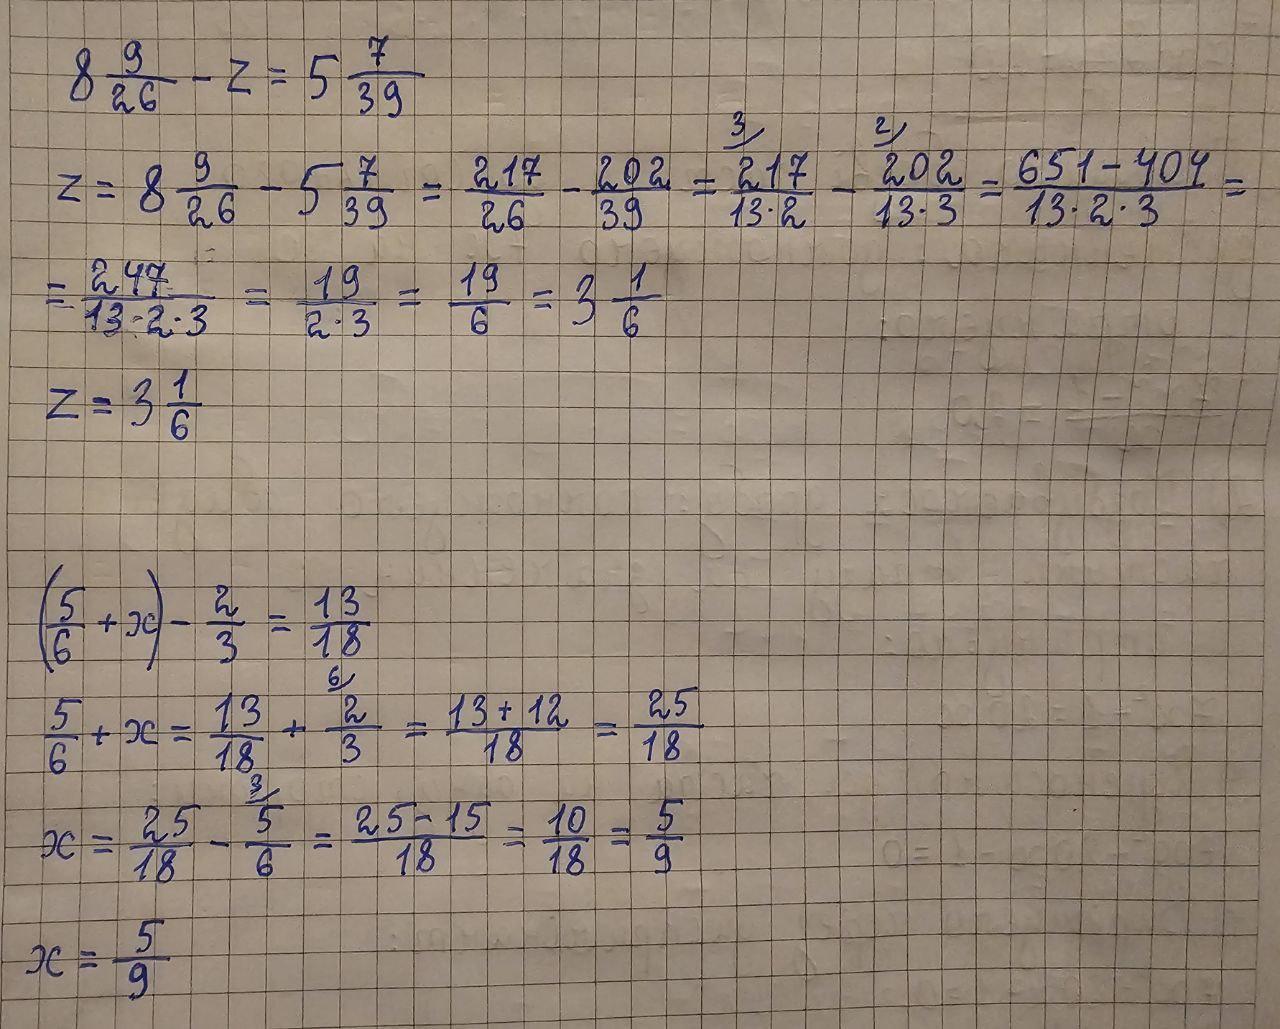 8 9/26 - z = 5 7/39
z = 8 9/26 - 5 7/39 = 217/26 - 202/39 = 3/ 217/13·2 - 2/ 202/13·3 = 651-404/13·2·3 =
= 247/13·2·3 = 19/2·3 = 19/6 = 3 1/6
z = 3 1/6
(5/6 + x) - 2/3 = 13/18
5/6 + x = 13/18 + 6/ 2/3 = 13+12/18 = 25/18
x = 25/18 - 3/ 5/6 = 25-15/18 = 10/18 = 5/9
x = 5/9